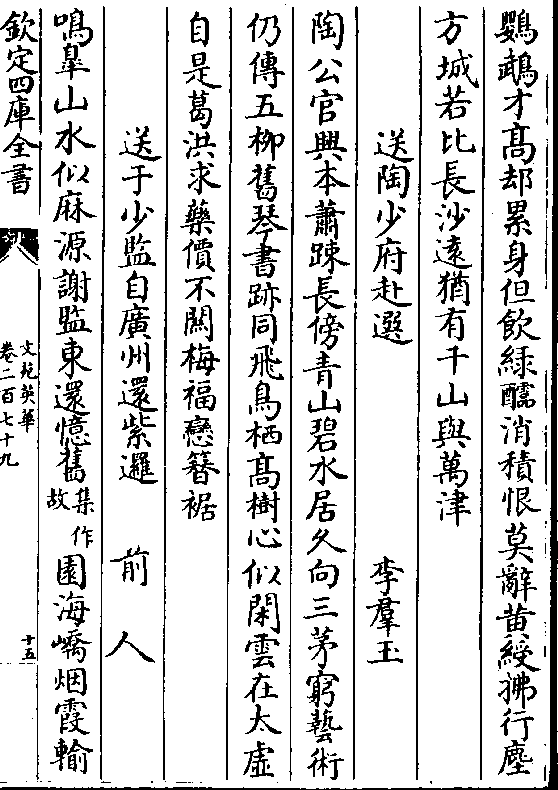 鸚鵡才髙却累身但飲緑醽消積恨莫辭黄綬拂行塵
方城若比長沙遠猶有千山與萬津
送陶少府赴選 李羣玉
陶公官興本蕭踈長傍青山碧水居久向三茅窮藝術
仍傳五柳舊琴書跡同飛鳥栖髙樹心似閑雲在太虚
自是葛洪求藥價不闗梅福戀簪裾
送于少監自廣州還紫邏 前人
鳴臯山水似麻源謝監東還憶舊集作故園海嶠烟霞輸
欽定四庫全書
文苑英華
卷二百七十九
十五